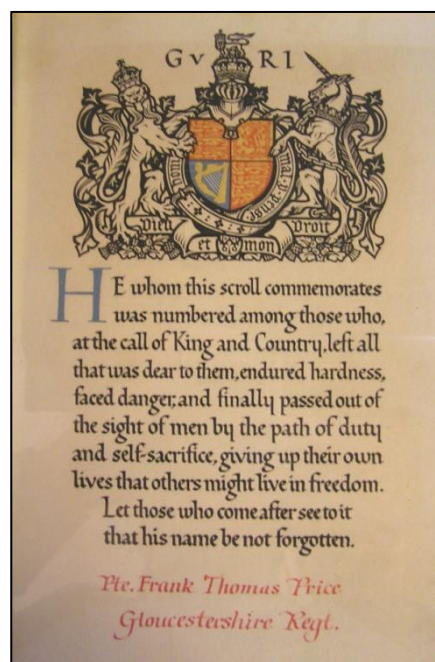 G V R I
honi mal y pense
Dieu et mon Droit
HE whom this scroll commemorates
was numbered among those who,
at the call of King and Country, left all
that was dear to them, endured hardness,
faced danger, and finally passed out of
the sight of men by the path of duty
and self-sacrifice, giving up their own
lives that others might live in freedom.
Let those who come after see to it
that his name be not forgotten.
Pte. Frank Thomas Price
Gloucestershire Regt.